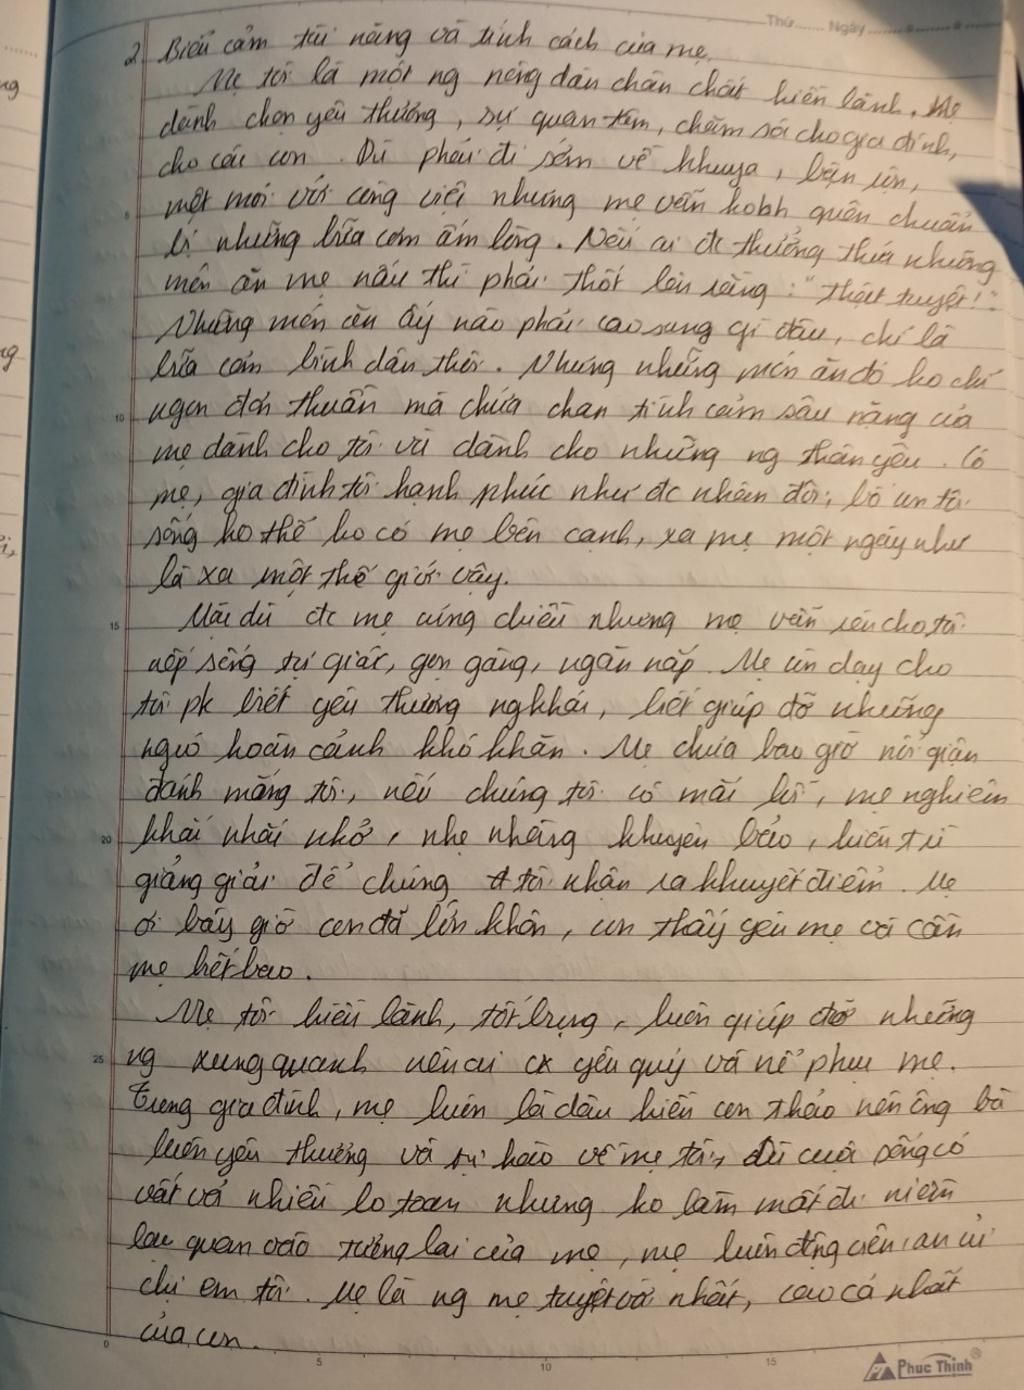 Thứ...... Ngày
2. Biểu cảm tài năng và tính cách của mẹ.
Mẹ tôi là một ng nông dân chân chất hiền lành. Mẹ
dành chọn yêu thương, sự quan tâm, chăm sóc cho gia đình,
cho các con. Dù phải đi sớm về khuya, bận rộn,
mệt mỏi với công việc nhưng mẹ vẫn quên chuẩn
bị những bữa cơm ấm lòng. Nếu ai đc thưởng thức những
món ăn mẹ nấu thì phải thốt lên rằng: "Thật tuyệt!"
Những món ăn ấy nào phải cao sang gì đâu, chỉ là
bữa cơm bình dân thôi. Nhưng những món ăn đó ko chỉ
ngon đơn thuần mà chứa chan tình cảm sâu nặng của
mẹ dành cho tôi và dành cho những ng thân yêu. Có
mẹ, gia đình tôi hạnh phúc như đc nhân đôi, bố con tôi
sống ko thể ko có mẹ bên cạnh, xa mẹ một ngày như
là xa một thế giới vậy.
Mặc dù đc mẹ cưng chiều nhưng mẹ vẫn rèn cho tôi
nếp sống tự giác, gọn gàng, ngăn nắp. Mẹ còn dạy cho
tôi pk biết yêu thương ng khác, biết giúp đỡ những
ngườ hoàn cảnh khó khăn. Mẹ chưa bao giờ nổi giận
đánh mắng tôi, nếu chúng tôi có mắc lỗi, mẹ nghiêm
khắc nhắc nhở, nhẹ nhàng khuyên bảo, luôn từ
giảng giải để chúng tôi nhận ra khuyết điểm. Mẹ
ơi bây giờ con đã lớn khôn, con thấy yêu mẹ và cần
mẹ biết bao.
Mẹ tôi hiền lành, tốt bụng, luôn giúp đỡ những
ng xung quanh nên ai cx yêu quý và nể phục mẹ.
Trong gia đình, mẹ luôn là dâu hiền con thảo nên ông bà
luôn yêu thương và tự hào về mẹ tôi, dù cuộc sống có
vất vả nhiều lo toan nhưng ko làm mất đi niềm
lạc quan vào tương lai của mẹ, mẹ luôn động viên, an ủi
chị em tôi. Mẹ là ng mẹ tuyệt vời nhất, cao cả nhất
của con.
5 10 15 20 25
0 5 10 15
Phuc Thinh